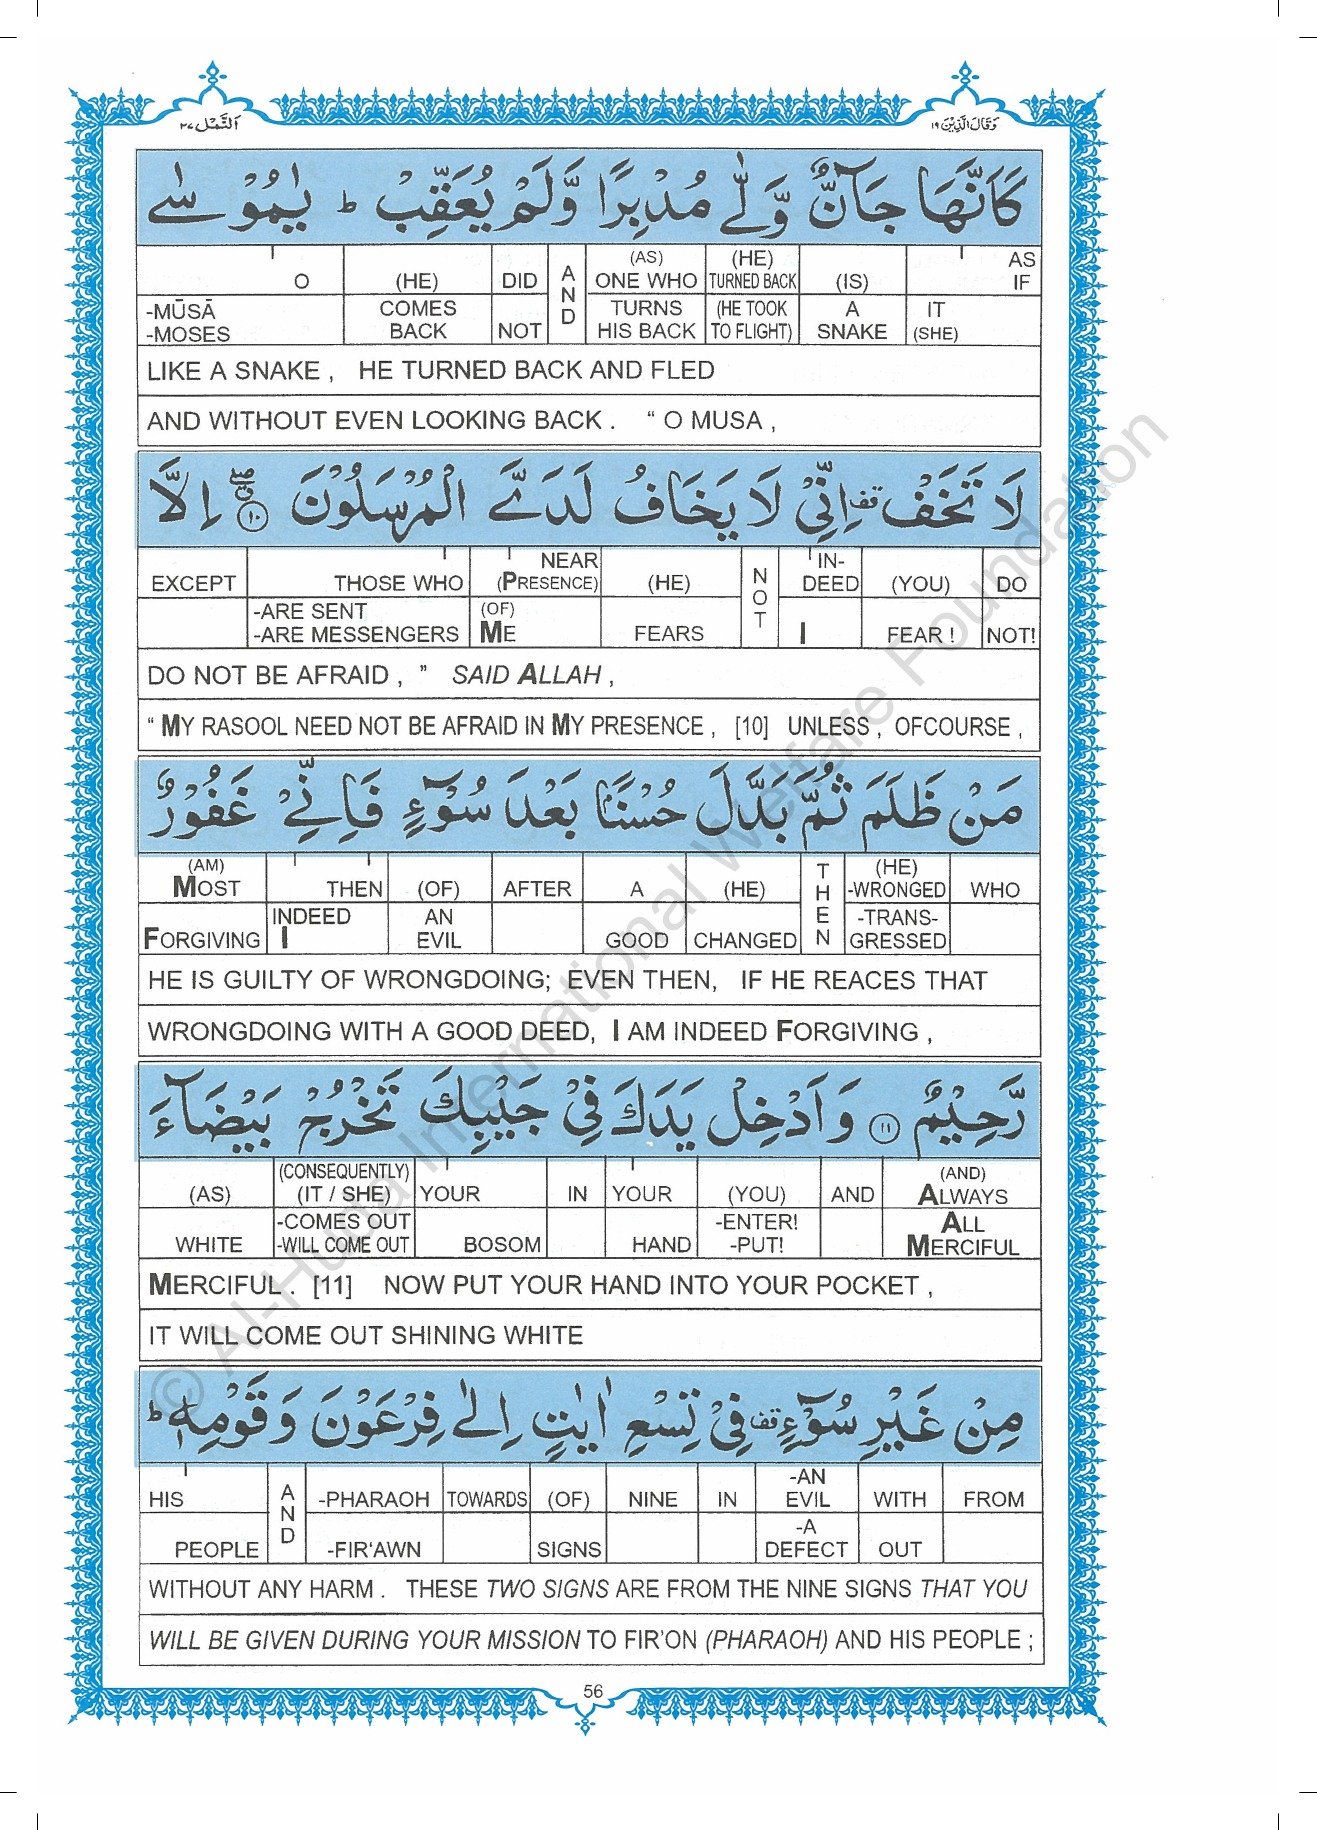 النَّمْل ٢٧ وَقَالَ الَّذِيْنَ ١٩
كَاَنَّهَا جَآنٌّ وَّلّٰى مُدْبِرًا وَّلَمْ يُعَقِّبْ ؕ يٰمُوْسٰى
O (HE) DID AND (AS) ONE WHO (HE) TURNED BACK (IS) AS IF
-MŪSĀ -MOSES COMES BACK NOT TURNS HIS BACK (HE TOOK TO FLIGHT) A SNAKE IT (SHE)
LIKE A SNAKE , HE TURNED BACK AND FLED
AND WITHOUT EVEN LOOKING BACK . “ O MUSA ,
لَا تَخَفْ قف اِنِّىْ لَا يَخَافُ لَدَىَّ الْمُرْسَلُوْنَ ۖ ۱۰ اِلَّا
EXCEPT THOSE WHO NEAR (PRESENCE) (HE) NOT IN-DEED (YOU) DO
-ARE SENT -ARE MESSENGERS (OF) ME FEARS I FEAR ! NOT!
DO NOT BE AFRAID , ” SAID ALLAH ,
“ MY RASOOL NEED NOT BE AFRAID IN MY PRESENCE , [10] UNLESS , OFCOURSE ,
مَنْ ظَلَمَ ثُمَّ بَدَّلَ حُسْنًۢا بَعْدَ سُوْٓءٍ فَاِنِّىْ غَفُوْرٌ
(AM) MOST THEN (OF) AFTER A (HE) THEN (HE) -WRONGED WHO
FORGIVING INDEED I AN EVIL GOOD CHANGED -TRANS-GRESSED
HE IS GUILTY OF WRONGDOING; EVEN THEN, IF HE REACES THAT
WRONGDOING WITH A GOOD DEED, I AM INDEED FORGIVING ,
رَّحِيْمٌ ۱۱ وَاَدْخِلْ يَدَكَ فِىْ جَيْبِكَ تَخْرُجْ بَيْضَآءَ
(AS) (CONSEQUENTLY) (IT / SHE) YOUR IN YOUR (YOU) AND (AND) ALWAYS
WHITE -COMES OUT -WILL COME OUT BOSOM HAND -ENTER! -PUT! ALL MERCIFUL
MERCIFUL . [11] NOW PUT YOUR HAND INTO YOUR POCKET ,
IT WILL COME OUT SHINING WHITE
مِنْ غَيْرِ سُوْٓءٍ قف فِىْ تِسْعِ اٰيٰتٍ اِلٰى فِرْعَوْنَ وَقَوْمِهٖ ؕ
HIS AND -PHARAOH TOWARDS (OF) NINE IN -AN EVIL WITH FROM
PEOPLE -FIR'AWN SIGNS -A DEFECT OUT
WITHOUT ANY HARM . THESE TWO SIGNS ARE FROM THE NINE SIGNS THAT YOU
WILL BE GIVEN DURING YOUR MISSION TO FIR'ON (PHARAOH) AND HIS PEOPLE ;
56
© Al-Huda International Welfare Foundation